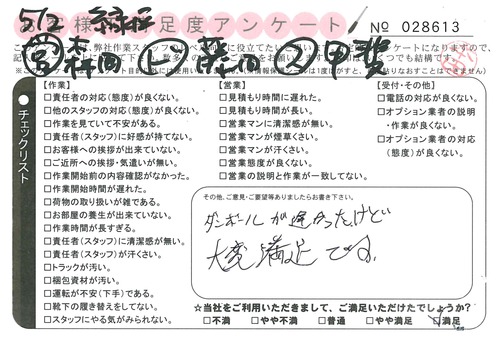 5/2
様満足度アンケート
No 028613
チェックリスト
【作業】
□責任者の対応(態度)が良くない。
□他のスタッフの対応(態度)が良くない。
□作業を見ていて不安がある。
□責任者(スタッフ)に好感が持てない。
□お客様への挨拶が出来ていない。
□ご近所への挨拶・気遣いが無い。
□作業開始前の内容確認がなかった。
□作業開始時間が遅れた。
□荷物の取り扱いが雑である。
□お部屋の養生が出来ていない。
□作業時間が長すぎる。
□責任者(スタッフ)に清潔感が無い。
□責任者(スタッフ)が汗くさい。
□トラックが汚い。
□梱包資材が汚い。
□運転が不安(下手)である。
□靴下の履き替えをしてない。
□スタッフにやる気がみられない。
【営業】
□見積もり時間に遅れた。
□見積もり時間が長い。
□営業マンに清潔感が無い。
□営業マンが煙草くさい。
□営業マンが汗くさい。
□営業態度が良くない。
□営業の説明と作業が一致してない。
【受付・その他】
□電話の対応が良くない。
□オプション業者の説明
・作業が良くない。
□オプション業者の対応
(態度)が良くない。
その他、ご意見・ご要望等ありましたらお書き下さい。
ダンボールが遅かったけど
大変満足です。
☆当社をご利用いただきまして、ご満足いただけたでしょうか?
□不満 □やや不満 □普通 □やや満足 □満足